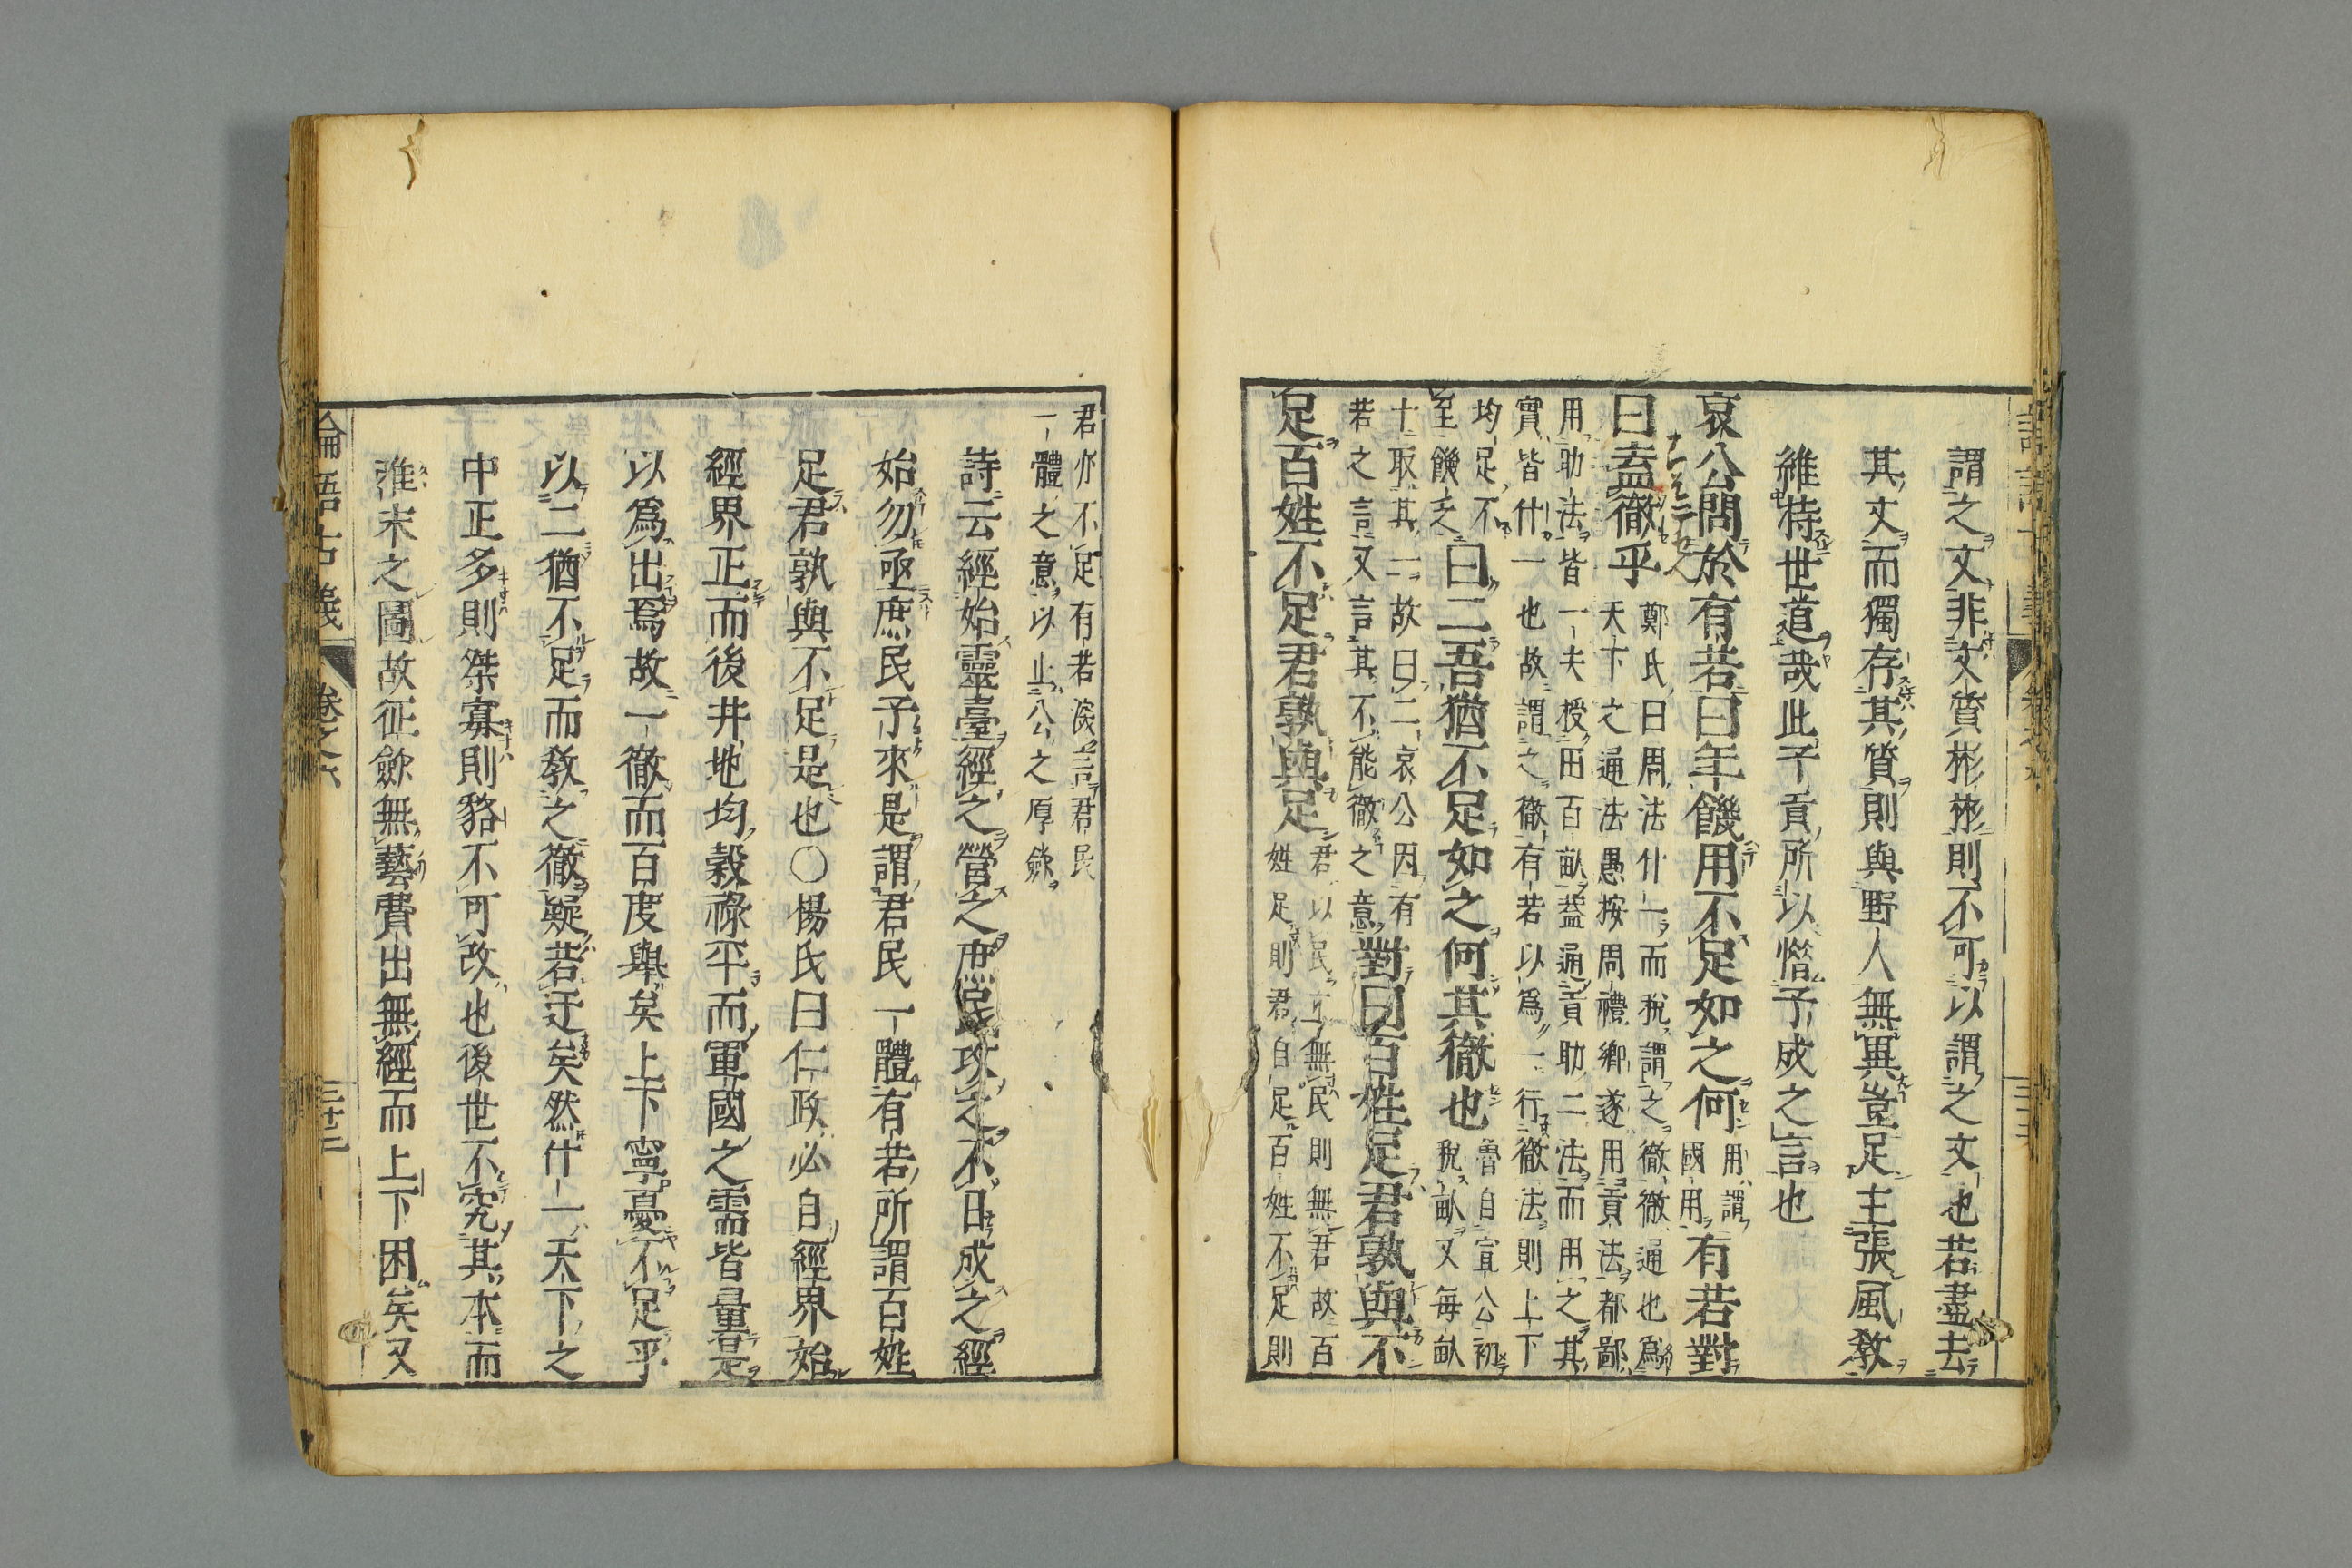 謂之文非文質彬彬則不可以謂之文也若盡去
其文而獨存其質則與野人無異豈足主張風教
維持世道哉此子貢所以惜子成之言也
哀公問於有若曰年饑用不足如之何
用謂
國用
有若對
曰盍徹乎
鄭氏曰周法什一而稅謂之徹徹通也爲
天下之通法愚按周禮鄉遂用貢法都鄙
用助法皆一夫授田百畝蓋通貢助二法而用之其
實皆什一也故謂之徹有若以爲一行徹法則上下
均足不
至饑乏
曰二吾猶不足如之何其徹也
魯自宣公初
稅畝又每畝
十取其一故曰二哀公因有
若之言又言其不能徹之意
對曰百姓足君孰與不
足百姓不足君孰與足
君以民立無民則無君故百
姓足則君自足百姓不足則
君亦不足有若深言君民
一體之意以止公之厚斂
詩云經始靈臺經之營之庶民攻之不日成之經
始勿亟庶民子來是謂君民一體有若所謂百姓
足君孰與不足是也〇楊氏曰仁政必自經界始
經界正而後井地均穀祿平而軍國之需皆量是
以爲出焉故一徹而百度舉矣上下寧憂不足乎
以二猶不足而教之徹疑若迂矣然什一天下之
中正多則桀寡則貉不可改也後世不究其本而
惟末之圖故征斂無藝費出無經而上下困矣又
論語古義
卷之六
三十三